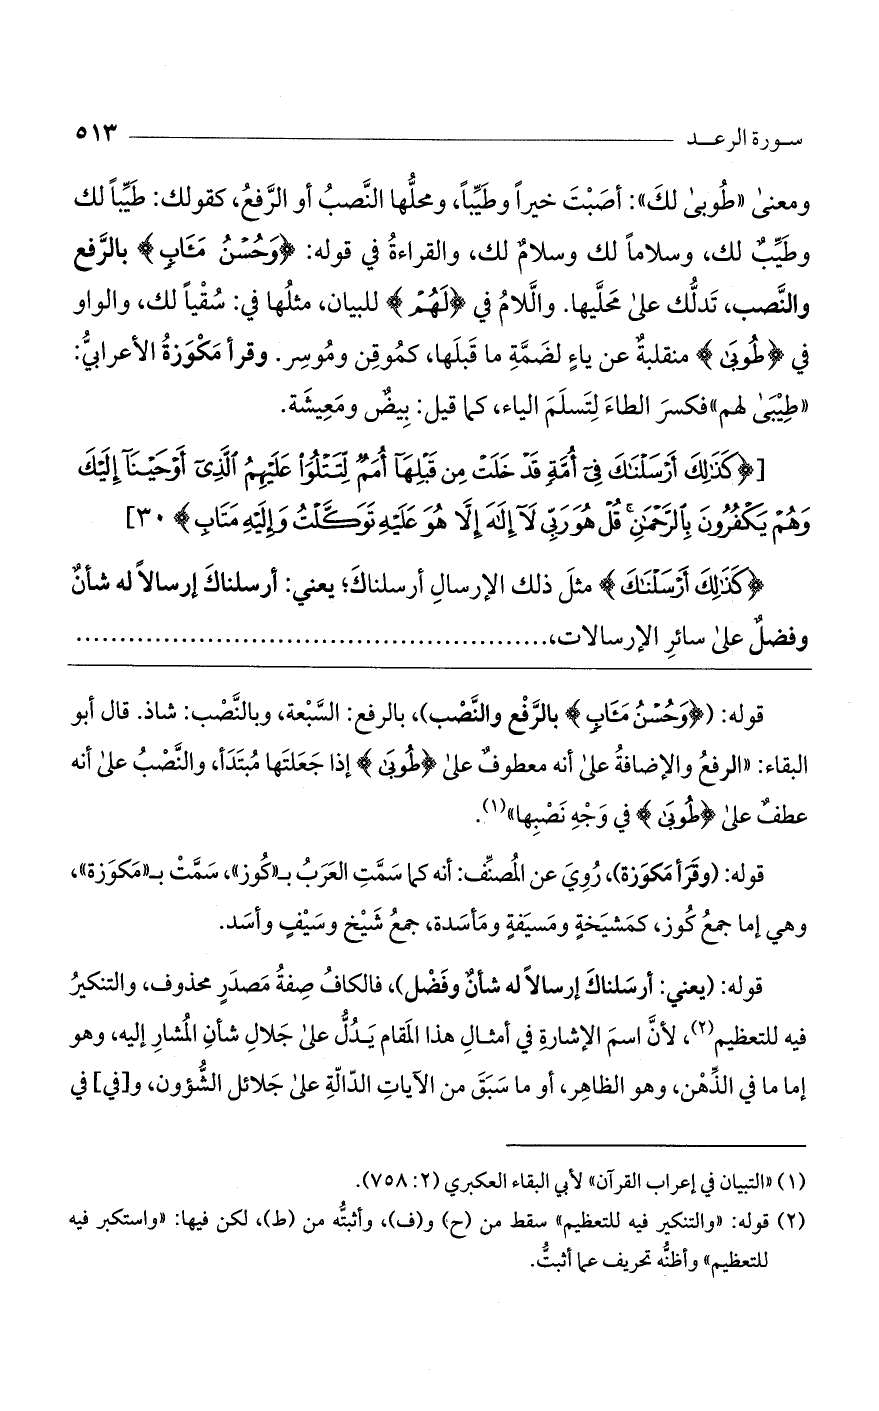 سورة الرعد ٥١٣
ومعنىٰ «طُوبىٰ لكَ»: أصَبْتَ خيراً وطَيِّباً، ومحلُّها النَّصبُ أو الرَّفعُ، كقولك: طَيِّباً لك
وطَيِّبٌ لك، وسلاماً لك وسلامٌ لك، والقراءةُ في قوله: ﴿وَحُسْنُ مَـَٔابٍ﴾ بالرَّفع
والنَّصب، تَدلُّك علىٰ مَحَلَّيها. واللَّامُ في ﴿لَهُمْ﴾ للبيان، مثلُها في: سُقْياً لك، والواو
في ﴿طُوبَىٰ﴾ منقلبةٌ عن ياءٍ لضَمَّةِ ما قبلَها، كمُوقِن ومُوسِر. وقرأ مَكْوَزةُ الأعرابيُّ:
«طِيْبَىٰ لهم» فكسرَ الطاءَ لِتَسلَمَ الياء، كما قيل: بِيضٌ ومَعِيشَة.
[﴿كَذَٰلِكَ أَرْسَلْنَٰكَ فِىٓ أُمَّةٍ قَدْ خَلَتْ مِن قَبْلِهَآ أُمَمٌ لِّتَتْلُوَا۟ عَلَيْهِمُ ٱلَّذِىٓ أَوْحَيْنَآ إِلَيْكَ
وَهُمْ يَكْفُرُونَ بِٱلرَّحْمَٰنِ ۚ قُلْ هُوَ رَبِّى لَآ إِلَٰهَ إِلَّا هُوَ عَلَيْهِ تَوَكَّلْتُ وَإِلَيْهِ مَتَابِ﴾ ٣٠]
﴿كَذَٰلِكَ أَرْسَلْنَٰكَ﴾ مثلَ ذلك الإرسالِ أرسلناكَ؛ يعني: أرسلناكَ إرسالاً له شأنٌ
وفضلٌ علىٰ سائرِ الإرسالات،......................................................
قوله: (﴿وَحُسْنُ مَـَٔابٍ﴾ بالرَّفْع والنَّصْب)، بالرفع: السَّبْعة، وبالنَّصْب: شاذ. قال أبو
البقاء: «الرفعُ والإضافةُ علىٰ أنه معطوفٌ علىٰ ﴿طُوبَىٰ﴾ إذا جَعَلتَها مُبتَدَأ، والنَّصْبُ علىٰ أنه
عطفٌ علىٰ ﴿طُوبَىٰ﴾ في وَجْهِ نَصْبِها»(١).
قوله: (وقَرَأ مَكوَزة)، رُوِيَ عن المُصنِّف: أنه كما سَمَّتِ العَرَبُ بـ«كُوز»، سَمَّتْ بـ«مَكوَزة»،
وهي إما جمعُ كُوز، كمَشيَخةٍ ومَسيَفةٍ ومَأسَدة، جمعُ شَيْخ وسَيْفٍ وأسَد.
قوله: (يعني: أرسَلناكَ إرسالاً له شأنٌ وفَضْل)، فالكافُ صِفةُ مَصدَرٍ محذوف، والتنكيرُ
فيه للتعظيم(٢)، لأنَّ اسمَ الإشارةِ في أمثـالِ هذا المَقام يَدُلُّ علىٰ جَلالِ شأنِ المُشارِ إليه، وهو
إما ما في الذِّهْن، وهو الظاهِر، أو ما سَبَقَ من الآياتِ الدّالّةِ علىٰ جَلائل الشُّؤون، و[في] في
(١) «التبيان في إعراب القرآن» لأبي البقاء العكبري (٢: ٧٥٨).
(٢) قوله: «والتنكير فيه للتعظيم» سقط من (ح) و(ف)، وأثبتُّه من (ط)، لكن فيها: «واستكبر فيه
للتعظيم» وأظنُّه تحريف عما أثبتُّ.